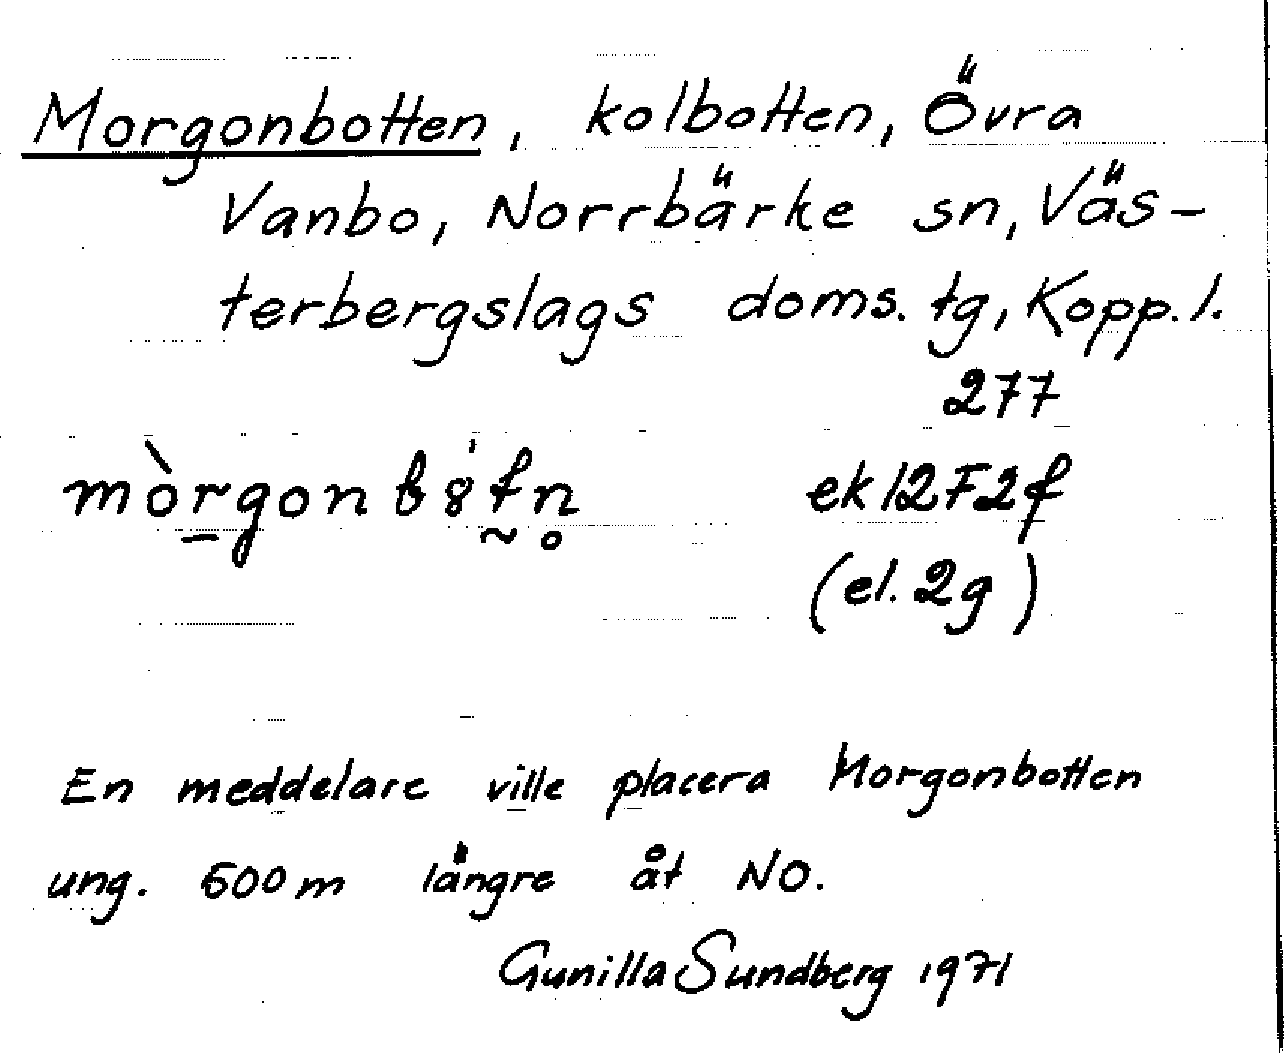 Morgonbotten, kolbotten, Övra
Vanbo, Norrbärke sn, Väs-
terbergslags doms. tg, Kopp. l.
277
mòrgonb8́tn ek12F2f
(el. 2g)
En meddelare ville placera Morgonbotten
ung. 600 m längre åt NO.
Gunilla Sundberg 1971